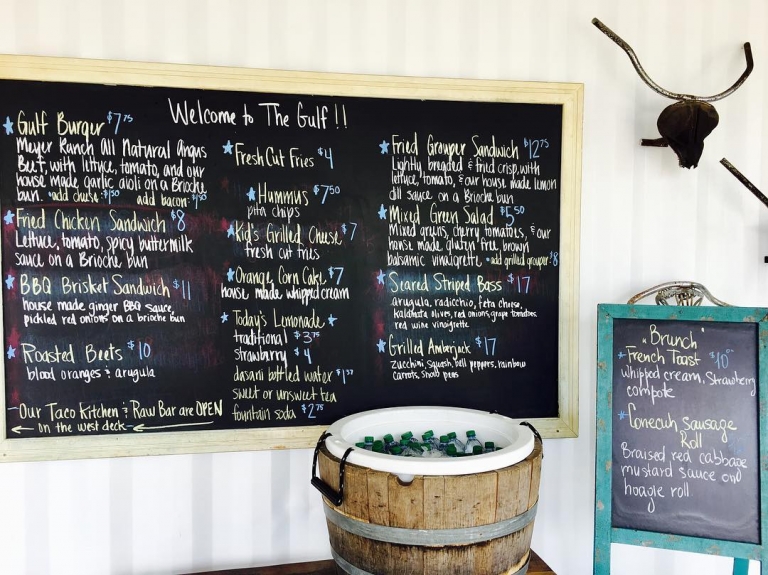 Welcome to The Gulf!!
Gulf Burger $7.75
Meyer Ranch All Natural Angus
Beef, with lettuce, tomato, and our
house made garlic aioli on a Brioche
bun. add cheese: $1.50 add bacon: $1.95
Fried Chicken Sandwich $8
Lettuce, tomato, spicy buttermilk
sauce on a Brioche bun
BBQ Brisket Sandwich $11
house made ginger BBQ sauce,
pickled red onions on a brioche bun
Roasted Beets $10
blood oranges & arugula
-Our Taco Kitchen & Raw Bar are OPEN
on the west deck
Fresh Cut Fries $4
Hummus $7.50
pita chips
Kid's Grilled Cheese $7
fresh cut fries
Orange Corn Cake $7
house made whipped cream
Today's Lemonade
traditional $3.75
strawberry $4
dasani bottled water
sweet or unsweet tea
fountain soda $2.75
Fried Grouper Sandwich $12.75
Lightly breaded & fried crisp, with
lettuce, tomato, & our house made lemon
dill sauce on a Brioche bun
Mixed Green Salad $5.50
Mixed greens, cherry tomatoes, & our
house made gluten free, brown
balsamic vinaigrette *add grilled grouper $8
Seared Striped Bass $17
arugula, radicchio, feta cheese,
kalamata olives, red onions, grape tomatoes,
red wine vinaigrette
Grilled Amberjack $17
zucchini, squash, bell peppers, rainbow
carrots, snow peas
"Brunch"
French Toast $10
whipped cream, Strawberry
compote
Conecuh Sausage
Roll
Braised red cabbage
mustard sauce and
hoagie roll